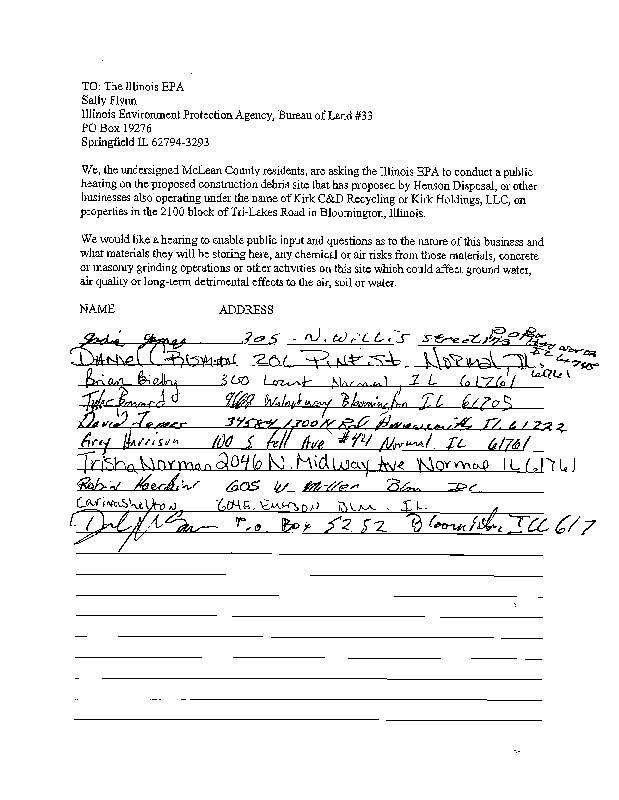 TO: The Illinois EPA
Sally Flynn
Illinois Environment Protection Agency, Bureau of Land #33
PO Box 19276
Springfield IL 62794-3293
We, the undersigned McLean County residents, are asking the Illinois EPA to conduct a public
hearing on the proposed construction debris site that has proposed by Henson Disposal, or other
businesses also operating under the name of Kirk C&D Recycling or Kirk Holdings, LLC, on
properties in the 2100 block of Tri-Lakes Road in Bloomington, Illinois.
We would like a hearing to enable public input and questions as to the nature of this business and
what materials they will be storing here, any chemical or air risks from those materials, concrete
or masonry grinding operations or other activities on this site which could affect ground water,
air quality or long-term detrimental effects to the air, soil or water.
NAME ADDRESS
305 - N. Willis street
Daniel 206 Pine St. Normal, IL. 61761
Brian 360 Normal, IL 61761
Tyler Bloomington IL 61705
David IL 61222
Greg Harrison 100 S Fell Ave #44 Normal IL 61761
Trisha Norman 2046 N. Midway Ave Normal IL 61761
Robin 605 W. Miller Blm IL
Carina Shelton Emerson Blm. IL
P.O. Box 5252 Bloomington, ILL 617